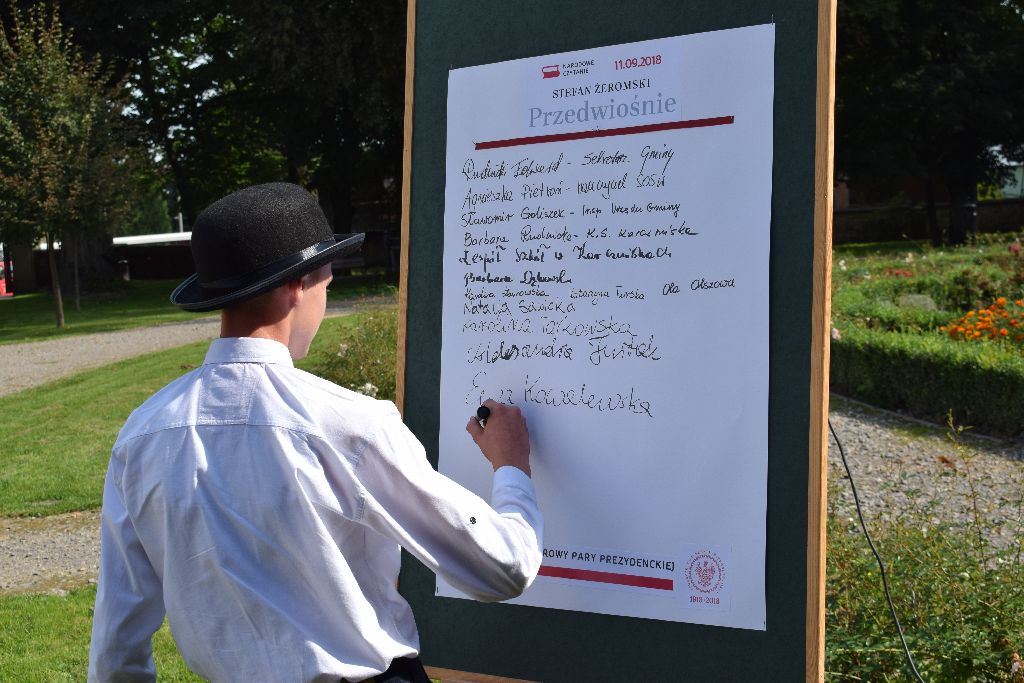 NARODOWE
CZYTANIE
11.09.2018
STEFAN ŻEROMSKI
Przedwiośnie
Rudnicki Edward - Sekretarz Gminy
Agnieszka Pietroń - nauczyciel
Sławomir Goliszek - Insp. Urzędu Gminy
Barbara Rudnicka - K.S. Karczmiska
Zespół Szkół w Karczmiskach
Barbara
Ola Olszowa
Natalia Sawicka
Karolina Tarkowska
Aleksandra Furtak
Ewa Kowalewska
ROWY PARY PREZYDENCKIEJ
1918-2018